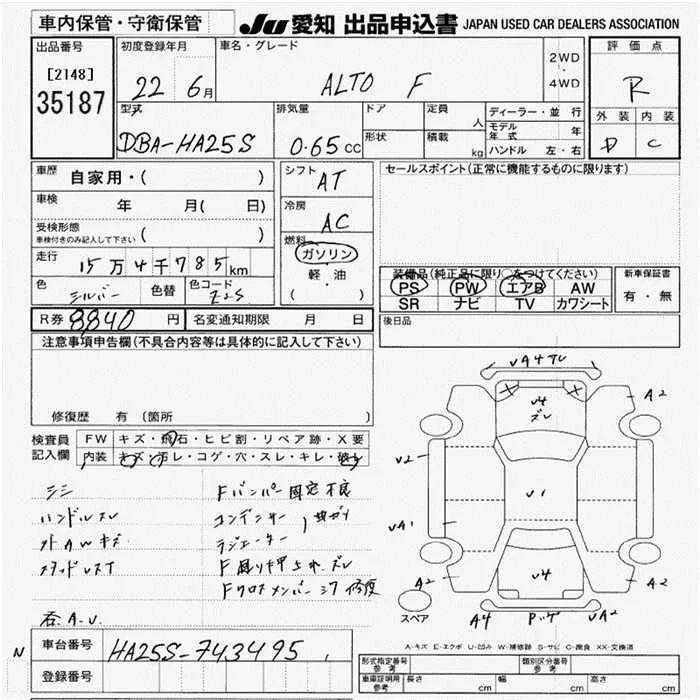 車内保管・守衛保管
JU 愛知 出品申込書 JAPAN USED CAR DEALERS ASSOCIATION
出品番号
[2148]
35187
初度登録年月
22 6月
車名・グレード
ALTO F
2WD
・
4WD
評価点
R
外装 内装
D C
型式
DBA-HA25S
排気量
0.65 CC
ドア
定員
人
形状
積載
kg
ディーラー・並行
モデル年式 年
ハンドル 左・右
車歴
自家用・( )
車検 年 月( 日)
受検形態
車検付きのみ記入して下さい ( )
走行 15万4千785km
色 シルバー 色替 色コード Z2S
シフト AT
冷房 AC
燃料
ガソリン
軽油
( )
セールスポイント(正常に機能するものに限ります)
装備品(純正品に限り○をつけてください)
PS PW エアB AW
SR ナビ TV カワシート
新車保証書
有・無
R券 8840 円 名変通知期限 月 日
後日品
注意事項申告欄(不具合内容等は具体的に記入して下さい)
修復歴 有 (箇所
検査員
記入欄
FW キズ・飛石・ヒビ割・リペア跡・X要
内装 キズ・汚レ・コゲ・穴・スレ・キレ・破れ
シミ
ハンドルスレ
社外AWキズ
Fバンパー固定不良
コンデンサー
ラジエーター
曲がり
F廻り押上れ、ズレ
Fクロスメンバーシワ 修復
A2
V4
ズレ
V2
V1
UA1
A2
V4
A2
スペア
A4
UA2
A-キズ E-エクボ U-凹み W-補修跡 S-サビ C-腐食 XX-交換済
N
車台番号 HA25S-743495
登録番号
形式指定番号
参考
類別区分番号
参考
車庫証明
参考
長さ cm 幅 cm 高さ cm